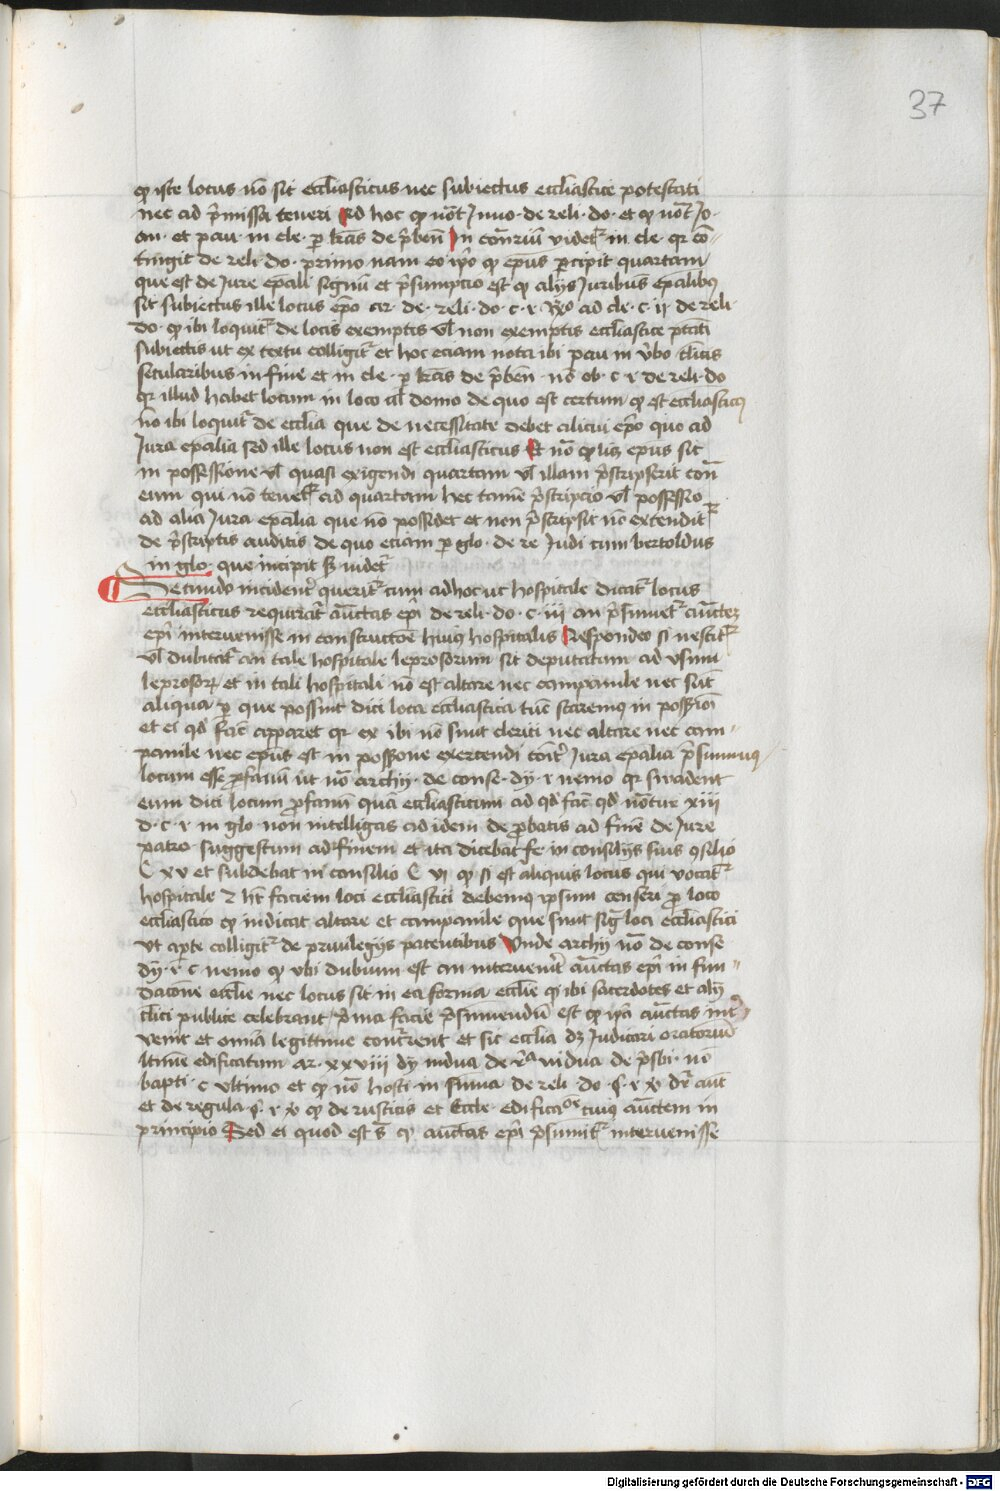 37
qꝫ iste locus nō sit eccliasticus nec subiectus eccliastice potestati
nec ad p̄missa teneri Ad hoc qꝫ nōt Inno · de reli · do · et qꝫ nōt Jo ·
an · et pau · in cle · ꝑ lr̄as de p̄ben̄ In cōr̄rium videtᷣ in cle · qr cō-
tingit de reli · do · primo nam eo ip̄o qꝫ ep̄us percipit quartam
que est de Jure ep̄ali signū et p̄sumpcio est qꝫ alijs Juribus ep̄alibꝰ
sit subiectus ille locus ep̄o ar · de · reli · do · c · i · ad cle · c · ii · de reli ·
do · qꝫ ibi loquitᷣ de locis exemptis vl̄ non exemptis eccliastice ptāti
subiectis ut ex textu colligitᷣ et hoc eciam nota ibi pau in v̄bo cl̄icis
secularibus in fine et in cle · ꝑ lr̄as de p̄ben̄ · nō ob · c · i · de reli · do
qr illud habet locum in loco ul̄ domo de quo est certum qꝫ est eccliasticꝰ
nō ibi loquitᷣ de ecclīa que de necessitate debet alicui ep̄o quo ad
Jura ep̄alia sed ille locus non est eccliasticus Et nō qꝫ licꝫ ep̄us sit
in possessione vl̄ quasi exigendi quartam vl̄ illam p̄scripserit con̄
eum qui nō tenetᷣ ad quartam hec tamē p̄scripcio vl̄ possessio
ad alia Jura ep̄alia que nō possidet et non p̄scripsit nō extenditᷣ
de p̄scriptis auditis de quo eciam ꝑ glo · de re Judi cum bertoldus
in glo · que incipit videtᷣ
Secundo incidenter queritᷣ cum ad hoc ut hospitale dicatᷣ locus
eccliasticus requiratᷣ auc̄tas ep̄i de reli · do · c · iii · an p̄sumetᷣ auc̄tas
ep̄i interuenisse in constructōe huiꝰ hospitalis Respondeo si nescitᷣ
vl̄ dubitatᷣ an tale hospitale leprosorum sit deputatum ad vsum
leprosoꝝ et in tali hospitali nō est altare nec campanile nec sūt
aliqua ꝑ que possint dici loca eccliastica tūc staremus in possessiōi
et ei qd̄ fac̄ apparet qr ex ibi nō sunt clerici nec altare nec cam-
panile nec ep̄us est in possōne exercendi Jura ep̄alia p̄sumimꝰ
locum esse ꝓfanū ut nō archy · de conse · dy · i · nemo qr suadent
eum dici locum ꝓfanū quā eccliasticum ad qd̄ fac̄ qd̄ nōtur xiii
d · c · i · in glo · non intelligas ad idem de ꝓbatis ad finē de Jure
patro · suggestum ad finem et ita dicebat fe · in consilijs suis consilio
C xv et subdebat in consilio C vi qꝫ si est aliquis locus qui vocatᷣ
hospitale ⁊ hꝫ faciem loci eccliastici debemus ipsum censeri ꝓ loco
eccliastico qꝫ indicat altare et campanile que sunt siḡ loci eccliastici
vt aꝑte colligitᷣ de priuilegijs patentibus Vnde archy nō de conse
dy · i · c · nemo qꝫ vbi dubium est an interuenerit auc̄tas ep̄i in fun-
dacōne ecclīe nec locus sit in ea forma ecclīe qꝫ ibi sacerdotes et alij
cl̄ici publice celebrant p̄ma facie p̄sumendū est qꝫ ip̄a auc̄tas int̄-
uenit et omīa legittime et sic ecclīa dꝫ Judicari oratoriū
edificatum ar · xxviii dy · vidua de vidua de p̄sbi · nō
bapti · c · vltimo et qꝫ nō hosti in sūma de reli · do ·
et de regula qꝫ de rusticis et cuiꝰ auc̄tem in
principio Sed ei quod est qꝫ auc̄tas ep̄i p̄sumitᷣ interuenisse
Digitalisierung gefördert durch die Deutsche Forschungsgemeinschaft - DFG